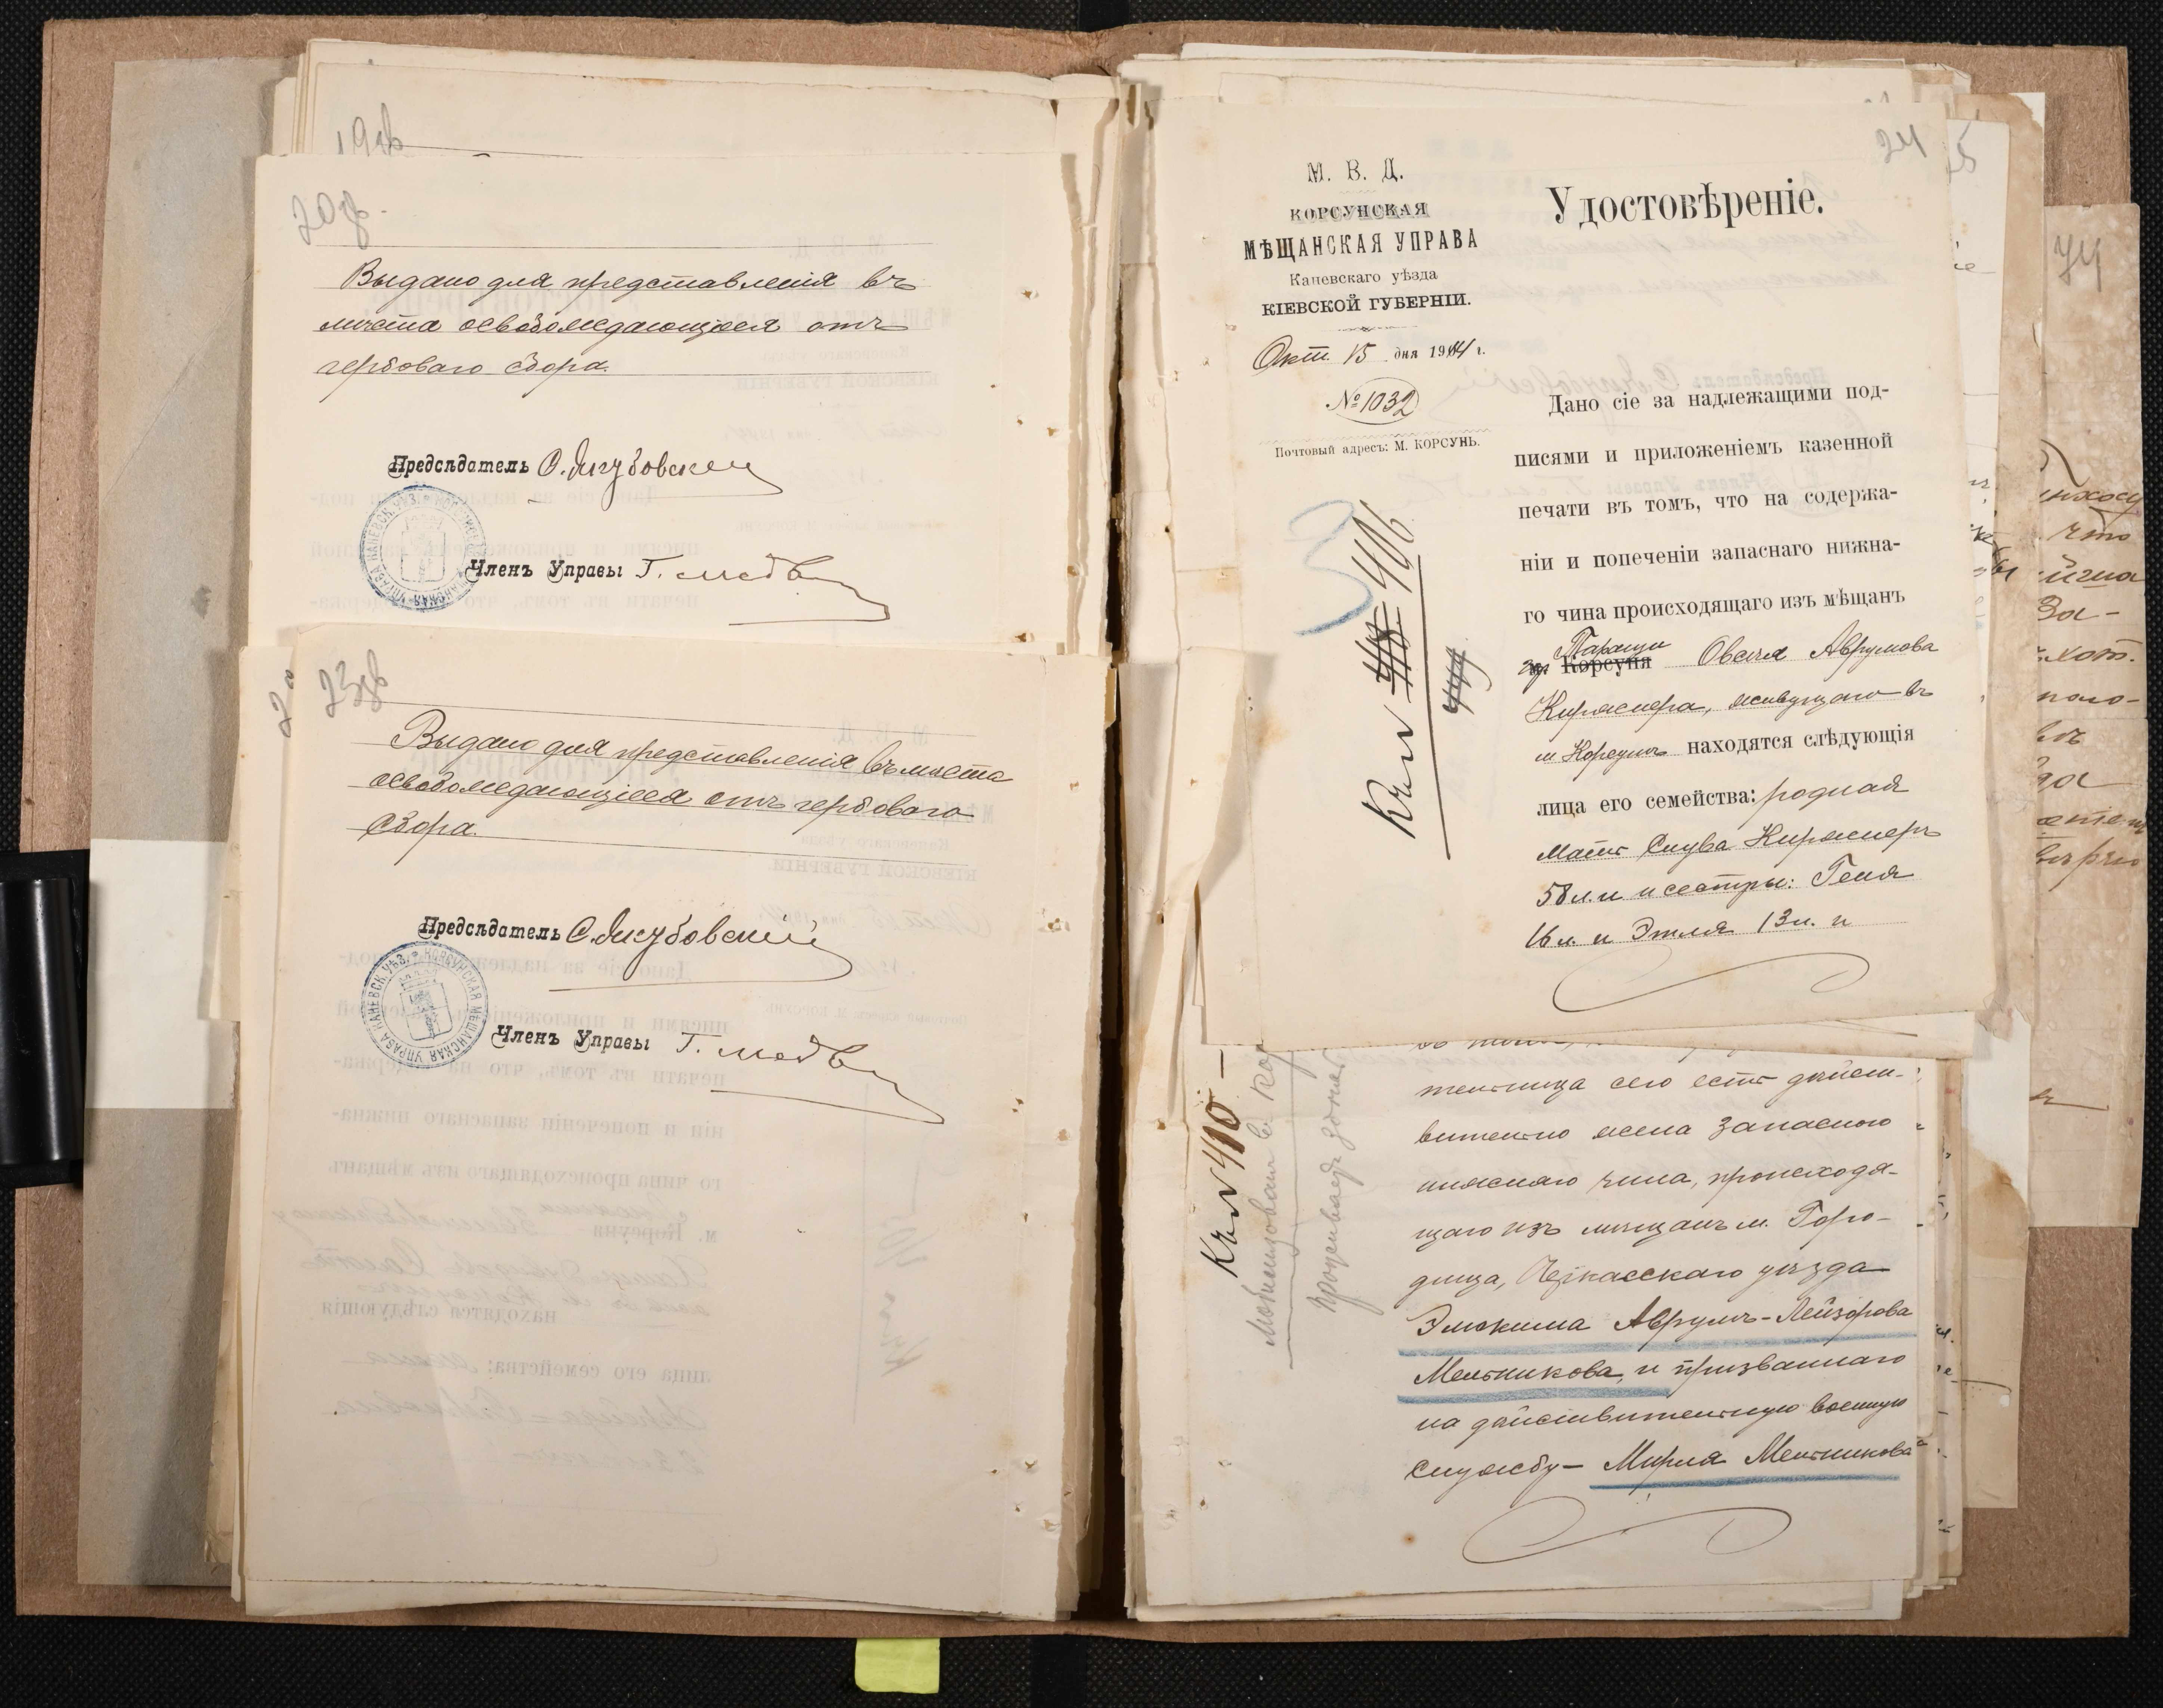 19об
20об.
Выдано для представленія въ
мѣста освобождающіеся отъ
гербоваго сбора.
Предсѣдатель С. Якубовскій
Членъ Управы Г.
23об
Выдано для представленія въ мѣста
освобождающіеся отъ гербоваго
сбора.
Предсѣдатель С. Якубовскій
КАНЕВСК. УѢЗ. КОРСУНСКАЯ МѢЩАНСКАЯ УПРАВА
Членъ Управы Г.
24
М. В. Д.
КОРСУНСКАЯ
МѢЩАНСКАЯ УПРАВА
Каневскаго уѣзда
КІЕВСКОЙ ГУБЕРНІИ.
Окт. 15 дня 1914 г.
№ 1032
Почтовый адресъ: М. КОРСУНЬ.
Удостовѣреніе.
Дано сіе за надлежащими под-
писями и приложеніемъ казенной
печати въ томъ, что на содержа-
ніи и попеченіи запаснаго нижня-
го чина происходящаго изъ мѣщанъ
гор. Таращи
Корсуня Овсея Аврумова
Киржнера, живущаго въ
м Корсунѣ находятся слѣдующія
лица его семейства: родная
мать Слува Киржнеръ
58 л. и сестры: Геня
16 л. и Этля 13 л. и
Къ № 406
Къ № 410
жительница сего есть дѣйст-
вительно жена запасного
нижняго чина, происходя-
щаго изъ мѣщанъ м. Горо-
дища, Черкасскаго уѣзда
Эльокима Аврумъ-Лейзорова
Мельникова, и призваннаго
на дѣйствительную военную
службу - Мирля Мельникова
74
что